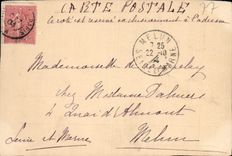 CARTE POSTALE
Ce côté est réservé exclusivement à l'adresse
MELUN
7 25
22 - 10
Mademoiselle de
chez Madame
4 Quai d'Almont
Melun
Seine et Marne
77